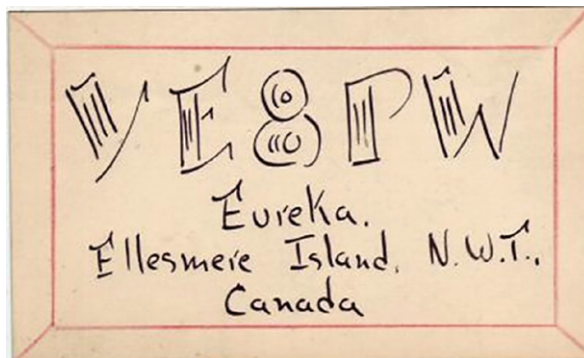 VE8PW
Eureka.
Ellesmere Island, N.W.T.,
Canada